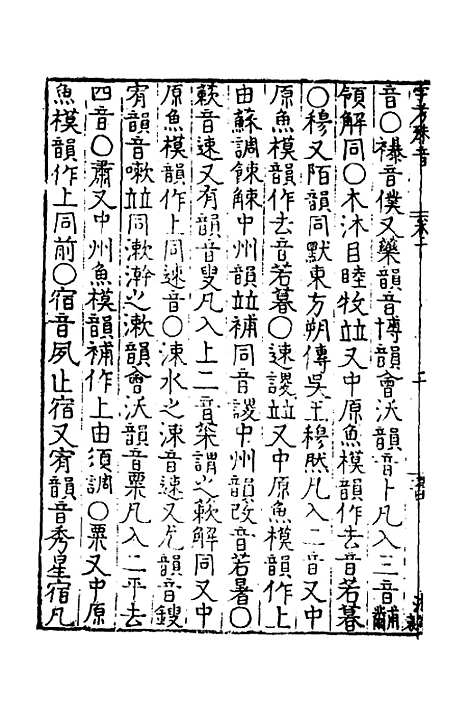 音〇襆音僕又藥韻音博韻會沃韻音卜凡入三音黼
領解同〇木沐目睦牧竝又中原魚模韻作去音若暮
〇穆又陌韻同默東方朔傳吳王穆然凡入二音又中
原魚模韻作去音若暮〇速謖竝又中原魚模韻作上
由蘇調餗觫中州韻竝補同音謖中州韻改音若暑〇
蔌音速又有韻音叟凡入上二音梁謂之蔌解同又中
原魚模韻作上同速音〇涑水之涑音速又尤韻音鎪
宥韻音嗽竝同漱澣之漱韻會沃韻音粟凡入二平去
四音〇肅又中州魚模韻補作上由須調〇粟又中原
魚模韻作上同前〇宿音夙止宿又宥韻音秀星宿凡